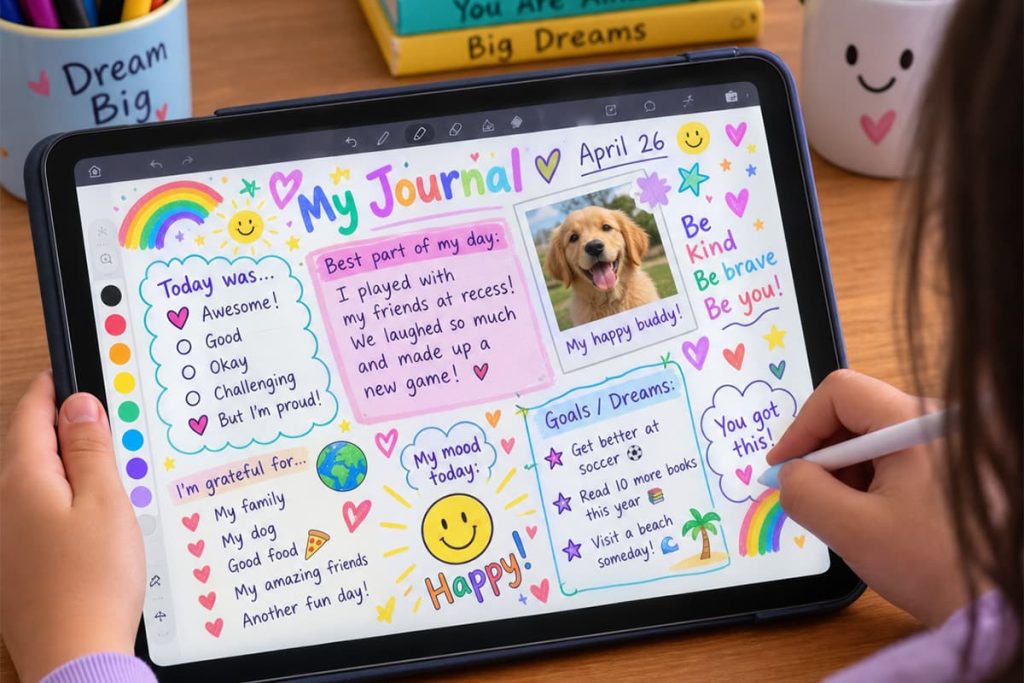 Dream
Big
You Are
Big Dreams
My Journal
April 26
Today was...
Awesome!
Good
Okay
Challenging
But I'm proud!
Best part of my day:
I played with
my friends at recess!
We laughed so much
and made up a
new game!
My happy buddy!
Be
Kind
Be brave
Be you!
I'm grateful for...
My family
My dog
Good food
My amazing friends
Another fun day!
My mood
today:
Happy!
Goals / Dreams:
Get better at
soccer
Read 10 more books
this year
Visit a beach
someday!
You got
this!